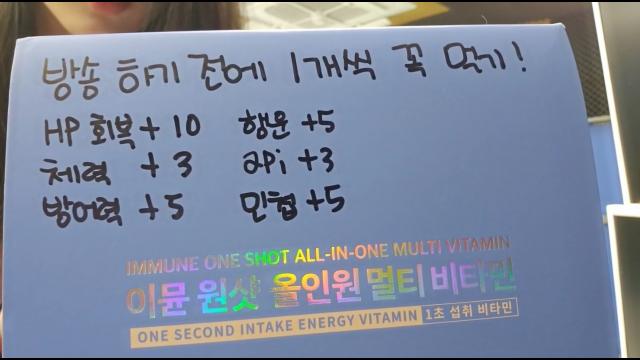 방송 하기 전에 1개씩 꼭 먹기!
HP 회복 + 10 행운 +5
체력 + 3 api +3
방어력 + 5 민첩 +5
IMMUNE ONE SHOT ALL-IN-ONE MULTI VITAMIN
이뮨 원샷 올인원 멀티 비타민
ONE SECOND INTAKE ENERGY VITAMIN 1초 섭취 비타민